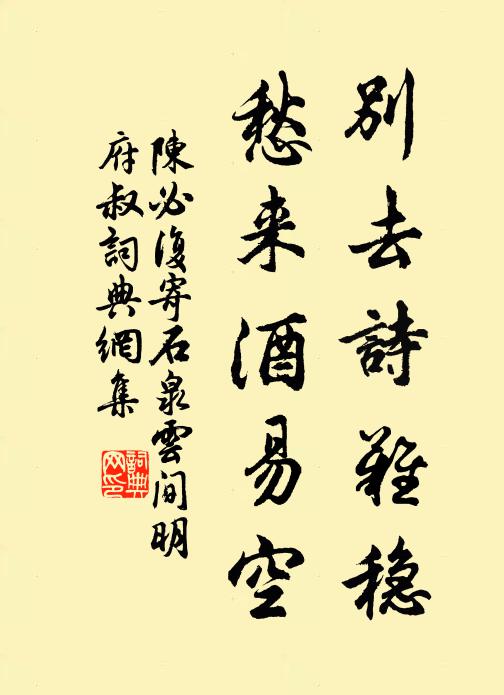 別去詩難穏
愁来酒易空
陳必復寄石泉雲间明
府叔詞典網集
詞典网印